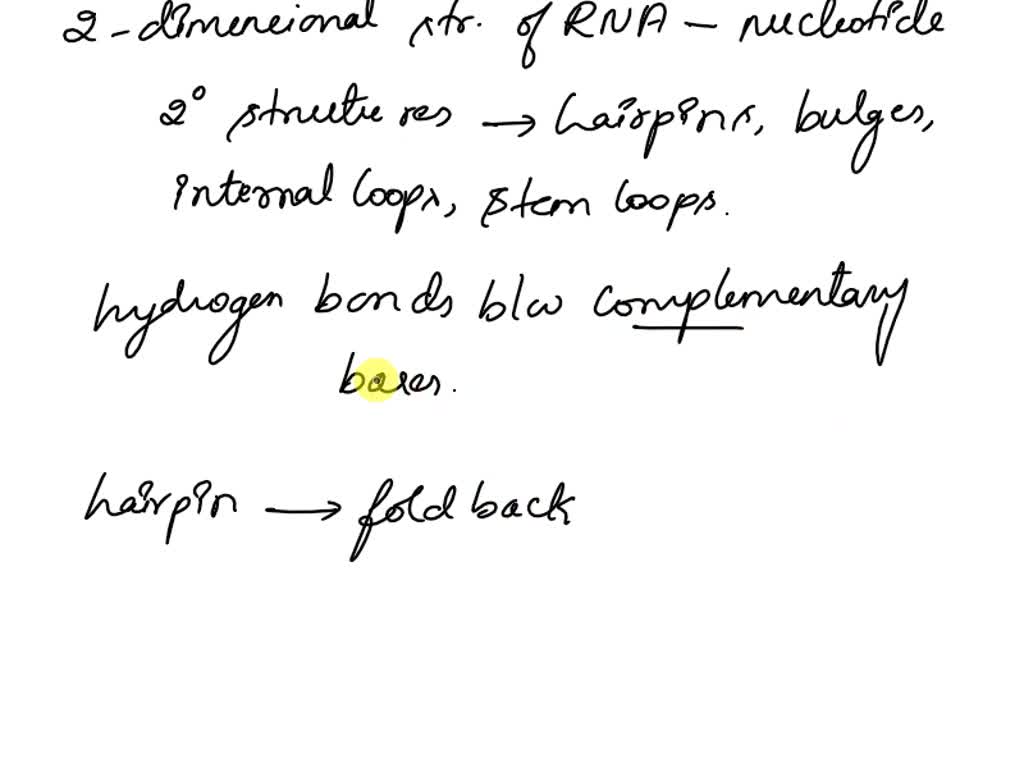 2-dimensional str. of RNA - nucleotide
2° structures → hairpins, bulges,
internal loops, stem loops.
hydrogen bonds b/w complementary
bases.
hairpin → fold back